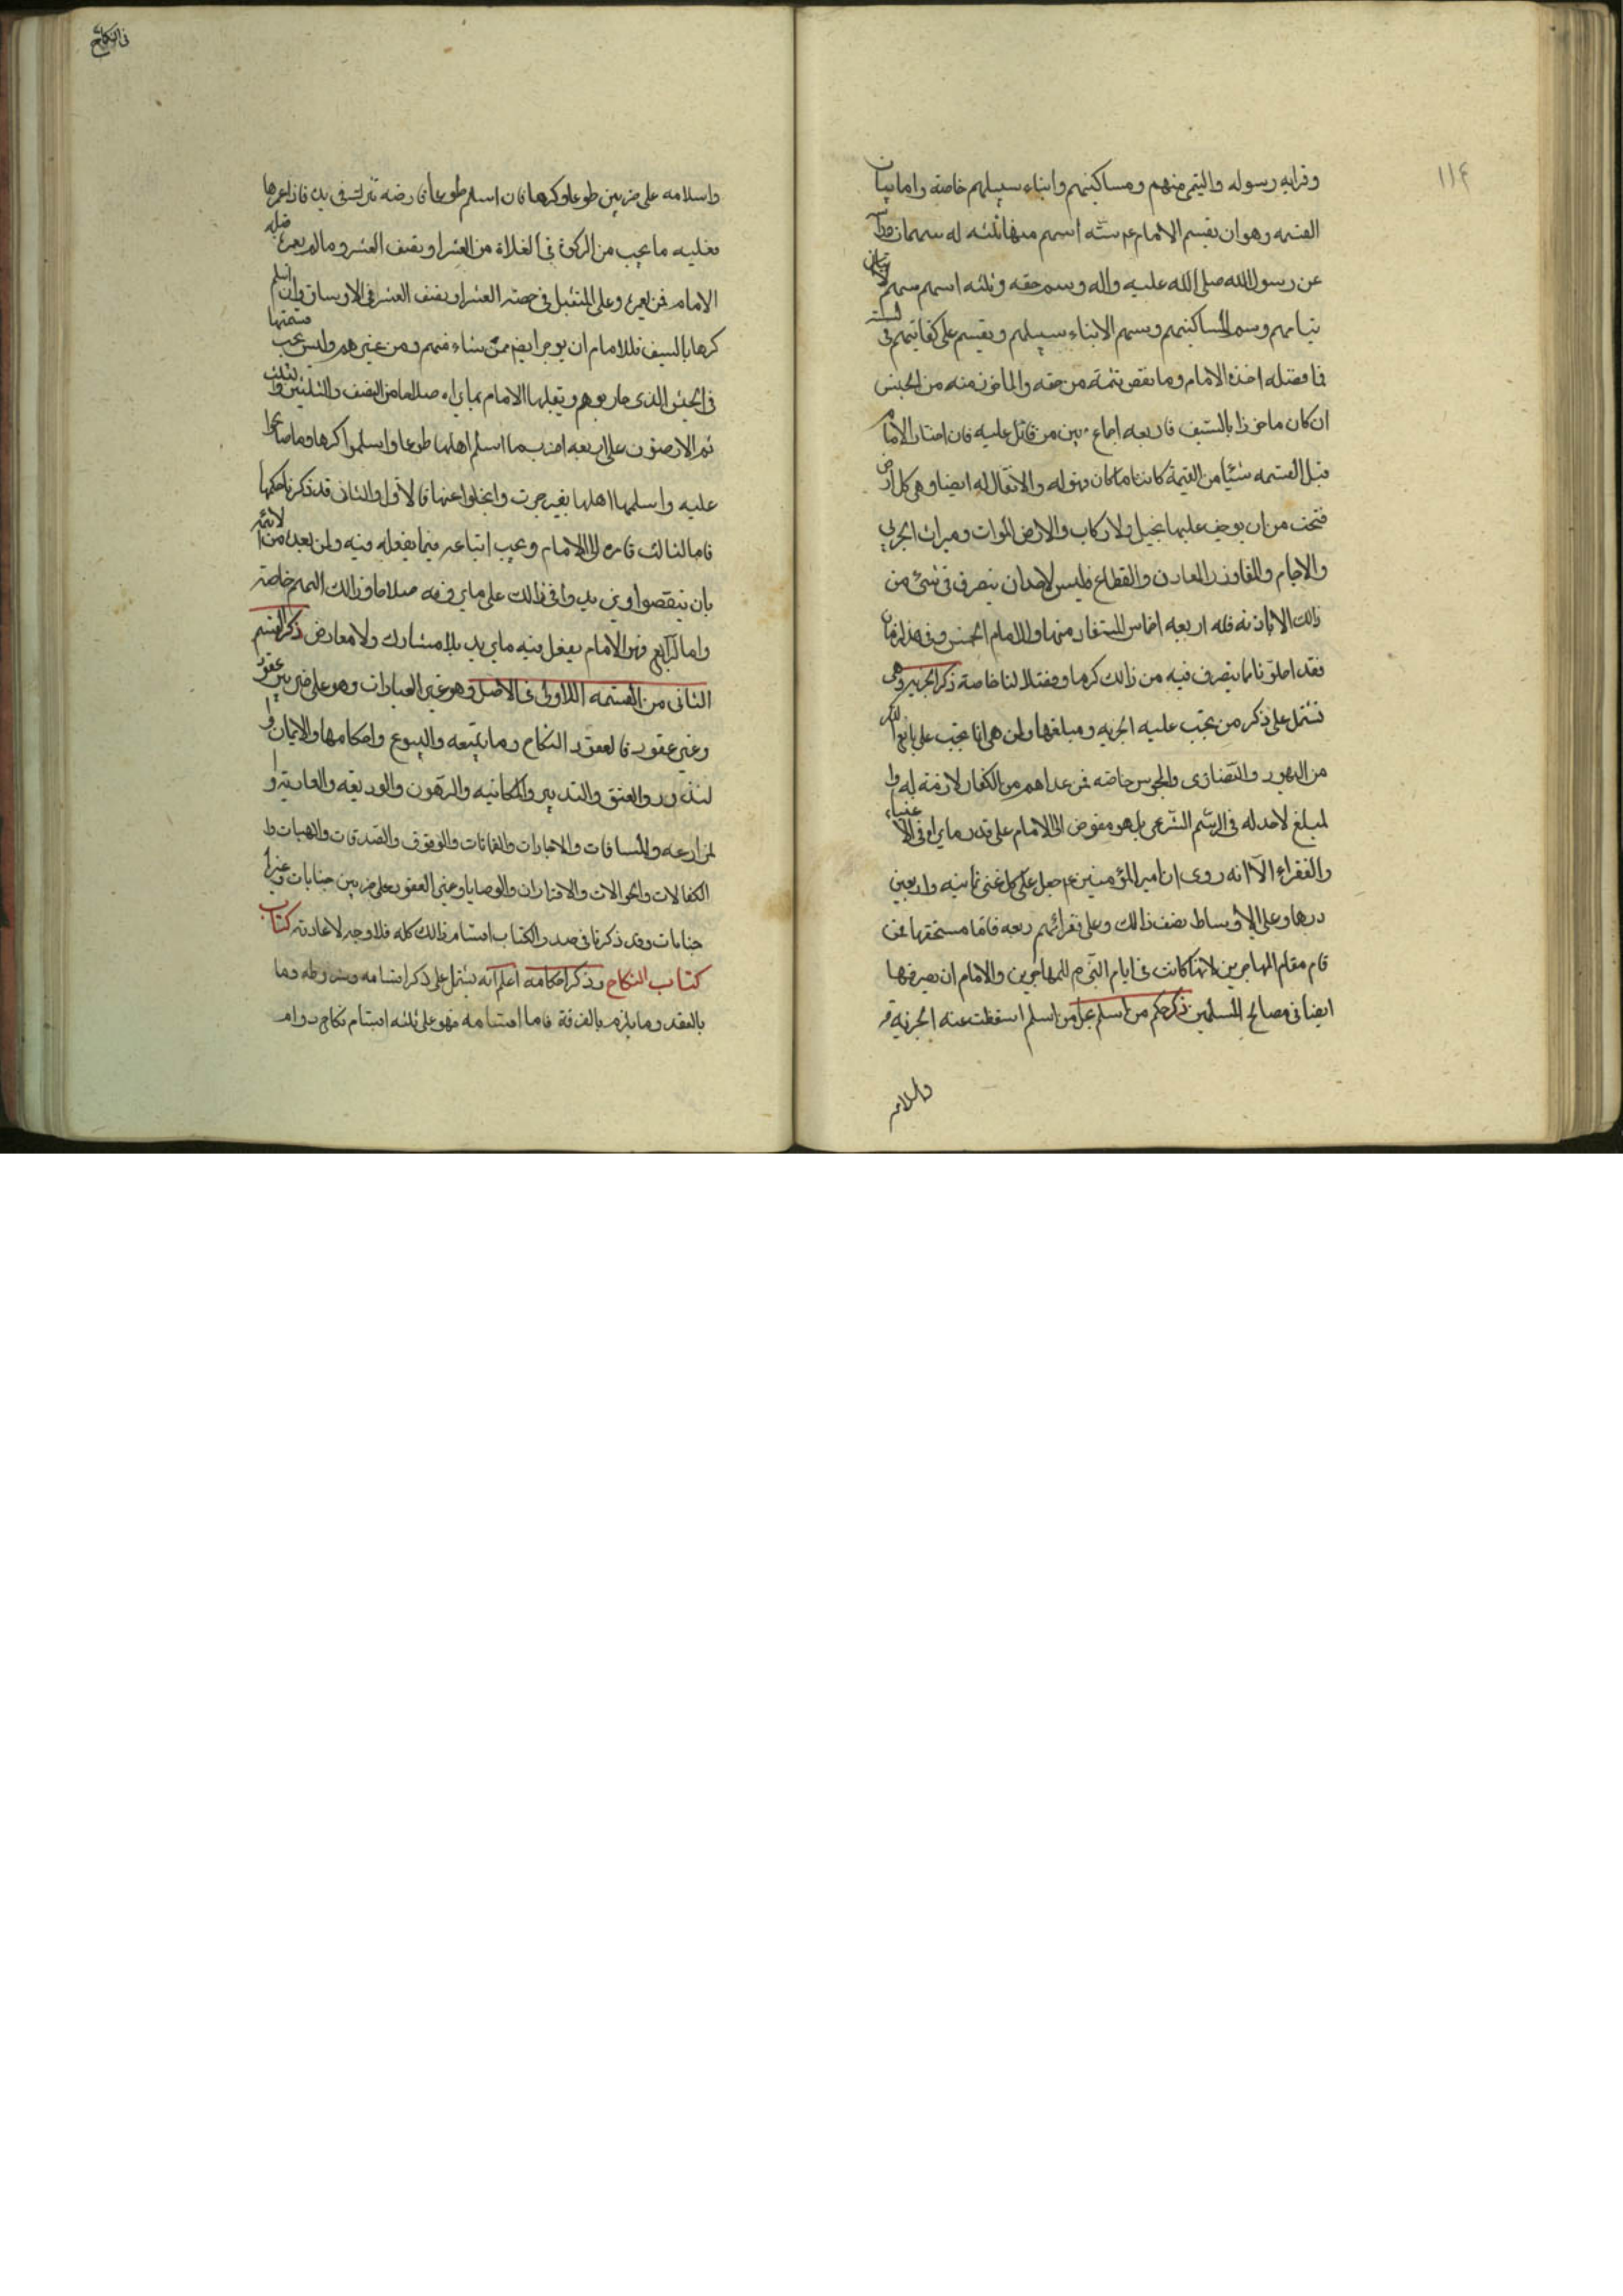 ١١٤
وقرابه رسوله واليتمى منهم ومساكنيهم وابناء سبيلهم خاصة واما بيان
القسمه وهو ان يقسم الامام عم ستة اسهم منها ثلثه له سهمان
عن رسول الله صلى الله عليه واله وسهم حقه وثلثه اسهم سهم
يتامهم وسهم لمساكنيهم وسهم الابناء سبيلهم ويقسم على كفايتهم فى السنه
فما فضله اخذه الامام وما نقص تممه من حقه والماخوذ منه من الخمس
ان كان ماخوذا بالسيف فاربعه اخماسه بين من قاتل عليه فان اختار الامام
قبل القسمه شيئا من الغنيمة كائنا ما كان فهو له والانفال له ايضا وهى كل ارض
فتحت من ان يوجف عليها بخيل ولا ركاب والارض الموات وميراث الحربي
والاجام والمفاوز والمعادن والقطاع فليس لاحد ان يتصرف فى شئ من
ذالك الا باذنه فله اربعه اخماس المستفاد منها وللامام الخمس وفى هذا زمان
فقد احلونا بما يتصرف فيه من ذالك كرما وفضلا لنا خاصة ذكر الجزيه وهى
تشتمل على ذكر من تجب عليه الجزيه ومبلغها ولمن هى انما تجب على بالغ الذكر
من اليهود والنصارى والمجوس خاصه فمن عداهم من الكفار لا ذمة له وا
لمبلغ لاحد له فى الرسم الشرعى بل هو مفوض الى الامام على قدر ما يراه فى الاغنياء
والفقراء الا انه روى ان امير المؤمنين عم جعل على كل غنى ثمانيه واربعين
درهما وعلى الاوساط نصف ذالك وعلى فقرائهم ربعه فاما مستحقها فمن
قام مقام المهاجرين لانها كانت فى ايام النبى م للمهاجرين والامام ان يصرفها
ايضا فى مصالح المسلمين ذكر حكم من اسلم بجل من اسلم اسقطت عنه الجزيه
واسلامه
فى النكاح
واسلامه على ضربين طوعا وكرها فان اسلم طوعا فارضه تترك فى يده فاذا عمرها
فعليه ما يجب من الزكوة فى الغلاة من العشر او نصف العشر وما لم يعمره قبله
الامام فمن يعمره وعلى المتقبل فى حصته العشر او نصف العشر فى الاوساق وان اسلم
كرها بالسيف فللامام ان يوجر ارضهم ممن شاء منهم ومن غيرهم وليس يجب قسمتها
فى الجيش الذى حاربوهم ويقبلها الامام بما يراه صلاحا من النصف والثلثين والثلث
ثم الارضون على اربعه اضرب ما اسلم اهلها طوعا واسلموا كرها وما صالحوا
عليه واسلمها اهلها بغير حرب وانجلوا عنها فالاول والثانى قد ذكرنا حكمها
فاما الثالث فامره الى الامام ويجب اتباعه فيما يفعله فيه ولمن بعده من الائمه
بان ينقصوا ويزيدوا فى ذالك على ما يروفه صلاحا وذالك اليهم خاصة
واما الرابع فهى الامام يفعل فيه ما يريد بلا مشارك ولا معارض ذكر القسم
الثانى من القسمه الاولى فى الاصل وهو غير العبادات وهو على ضربين عقود
وغير عقود فالعقود النكاح وما يتبعه والبيوع واحكامها والايمان وا
لنذور والعتق والتدبير والمكاتبه والرهون والوديعه والعاريه وا
لمزارعه والمساقات والاجارات والضمانات والوقوف والصدقات والهبات وا
الكفالات والحوالات والاقرارات والوصايا وغير العقود على ضربين جنايات وغير
جنايات وقد ذكرنا فى صدر الكتاب اقسام ذالك كله فلا وجه لاعادته كتاب
كتاب النكاح وذكر احكامه اعلم انه يشتمل على ذكر اقسامه وشروطه وما
بالعقد وما يلزم بالفرقة فاما اقسامه فهو على ثلثه اقسام نكاح دوام